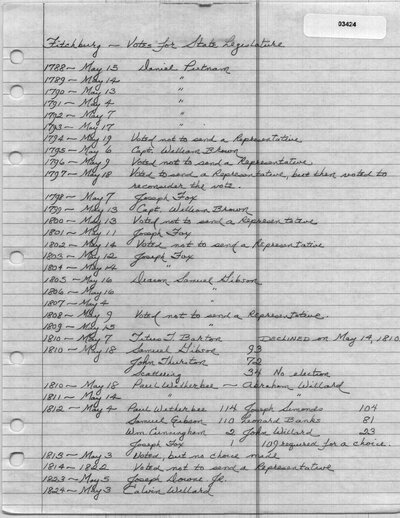 03424
Fitchburg — Votes for State Legislature
1788 — May 15 Daniel Putnam
1789 — May 14 "
1790 — May 13 "
1791 — May 4 "
1792 — May 7 "
1793 — May 17 "
1794 — May 19 Voted not to send a Representative
1795 — May 6 Capt. William Brown
1796 — May 9 Voted not to send a Representative
1797 — May 18 Voted to send a Representative, but then voted to
reconsider the vote.
1798 — May 7 Joseph Fox
1799 — May 13 Capt. William Brown
1800 — May 13 Voted not to send a Representative
1801 — May 11 Joseph Fox
1802 — May 14 Voted not to send a Representative
1803 — May 12 Joseph Fox
1804 — May 14 "
1805 — May 16 Deacon Samuel Gibson
1806 — May 16 "
1807 — May 4 "
1808 — May 9 Voted not to send a Representative.
1809 — May 15 "
1810 — May 7 Titus T. Barton DECLINED on May 14, 1810
1810 — May 18 Samuel Gibson 93
John Thurston 72
Scattering 34 No election
1810 — May 18 Paul Wetherbee — Abraham Willard
1811 — May 14 " "
1812 — May 4 Paul Wetherbee 114 Joseph Simonds 104
Samuel Gibson 110 Leonard Banks 81
Wm. Cunningham 2 John Willard 23
Joseph Fox 1 109 required for a choice.
1813 — May 3 Voted, but no choice made
1814 — 1822 Voted not to send a Representative
1823 — May 5 Joseph Downe Jr.
1824 — May 3 Calvin Willard